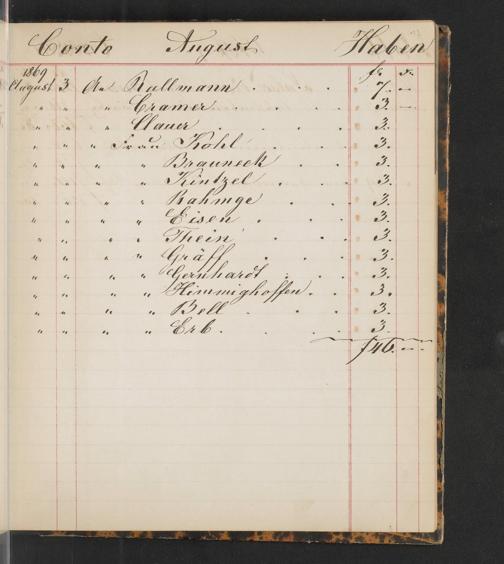 Conto August Haben
1869 fr. x.
August 3 An Kallmann . . . . 7. —
" " " Cramer . . . . 3 —
" " " Clauer . . . . 3.
" " " Frau Kohl . . . 3.
" " " " Brauneck . . . 3.
" " " " Kintzel . . . 3.
" " " " Rahmge . . . 3.
" " " " Eisen . . . 3.
" " " " Thein . . . 3.
" " " " Gräff . . . 3.
" " " " Gernhardt . . . 3.
" " " " Himmighoffen . . 3.
" " " " Bell . . . 3.
" " " " Erb . . . 3.
f 46. —